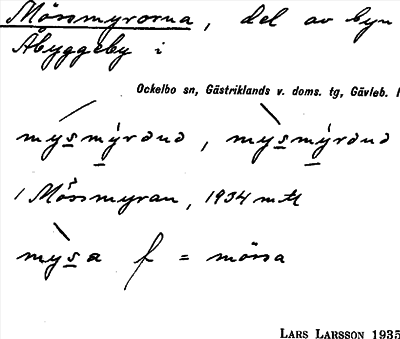 Mörsmyrorna, del av byn
Åbyggeby i
Ockelbo sn, Gästriklands v. doms. tg, Gävleb. l
mysmýrəuə, mysmýrəuə
1 Mö̌rsmyran, 1934 mtl
mysa f = mörsa
LARS LARSSON 1935